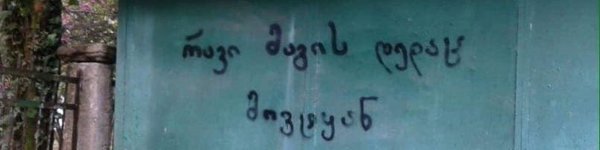 რავი მაგის დედაც
მოვტყან